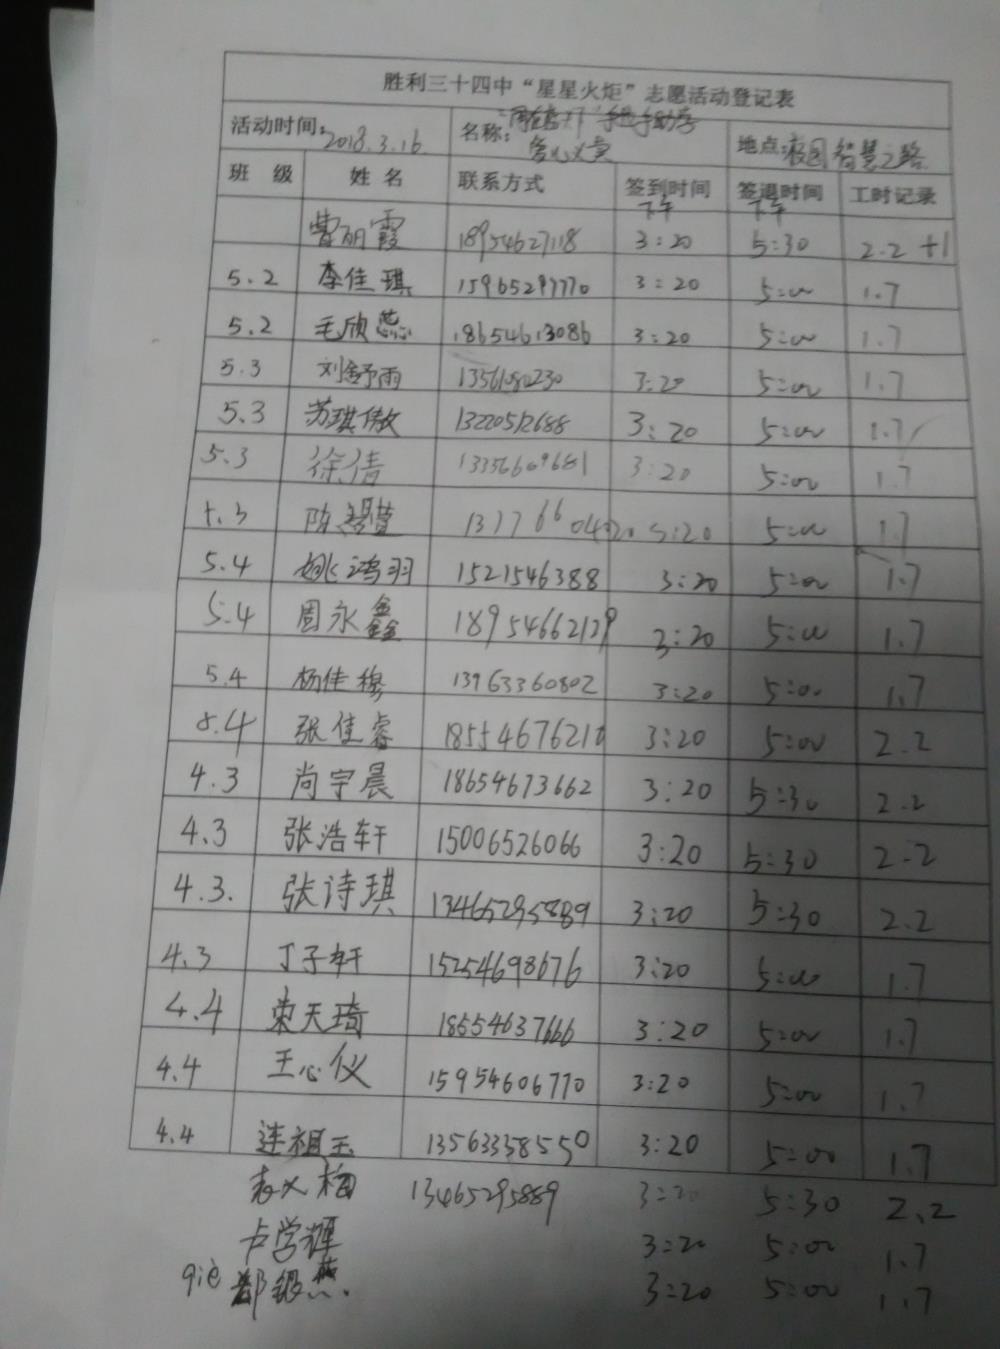 胜利三十四中“星星火炬”志愿活动登记表
活动时间：2018.3.16. 名称： 爱心义卖 地点：校园智慧之路
班 级 姓 名 联系方式 签到时间 下午 签退时间 下午 工时记录
曹丽霞 18954627118 3:20 5:30 2.2 +1
5.2 李佳琪 15965297770 3:20 5:00 1.7
5.2 毛欣蕊 18654613086 3:20 5:00 1.7
5.3 刘舒雨 1356180230 3:20 5:00 1.7
5.3 苏琪傲 13220512688 3:20 5:00 1.7
5.3 徐倩 13356609681 3:20 5:00 1.7
5.3 陈 萱 13776604020 3:20 5:00 1.7
5.4 姚鸿羽 1521546388 3:20 5:00 1.7
5.4 周永鑫 18954662129 3:20 5:00 1.7
5.4 杨佳穆 13963360802 3:20 5:00 1.7
5.4 张佳睿 18554676210 3:20 5:00 2.2
4.3 尚宇晨 18654673662 3:20 5:30 2.2
4.3 张浩轩 15006526066 3:20 5:30 2.2
4.3. 张诗琪 13465295889 3:20 5:30 2.2
4.3 丁子轩 15254698676 3:20 5:00 1.7
4.4 荣天琦 18554637666 3:20 5:00 1.7
4.4 王心仪 15954606770 3:20 5:00 1.7
4.4 连祖玉 13563358550 3:20 5:00 1.7
袁义梅 13465295889 3:20 5:30 2.2
卢学辉 3:20 5:00 1.7
qiè 郄银燕. 3:20 5:00 1.7